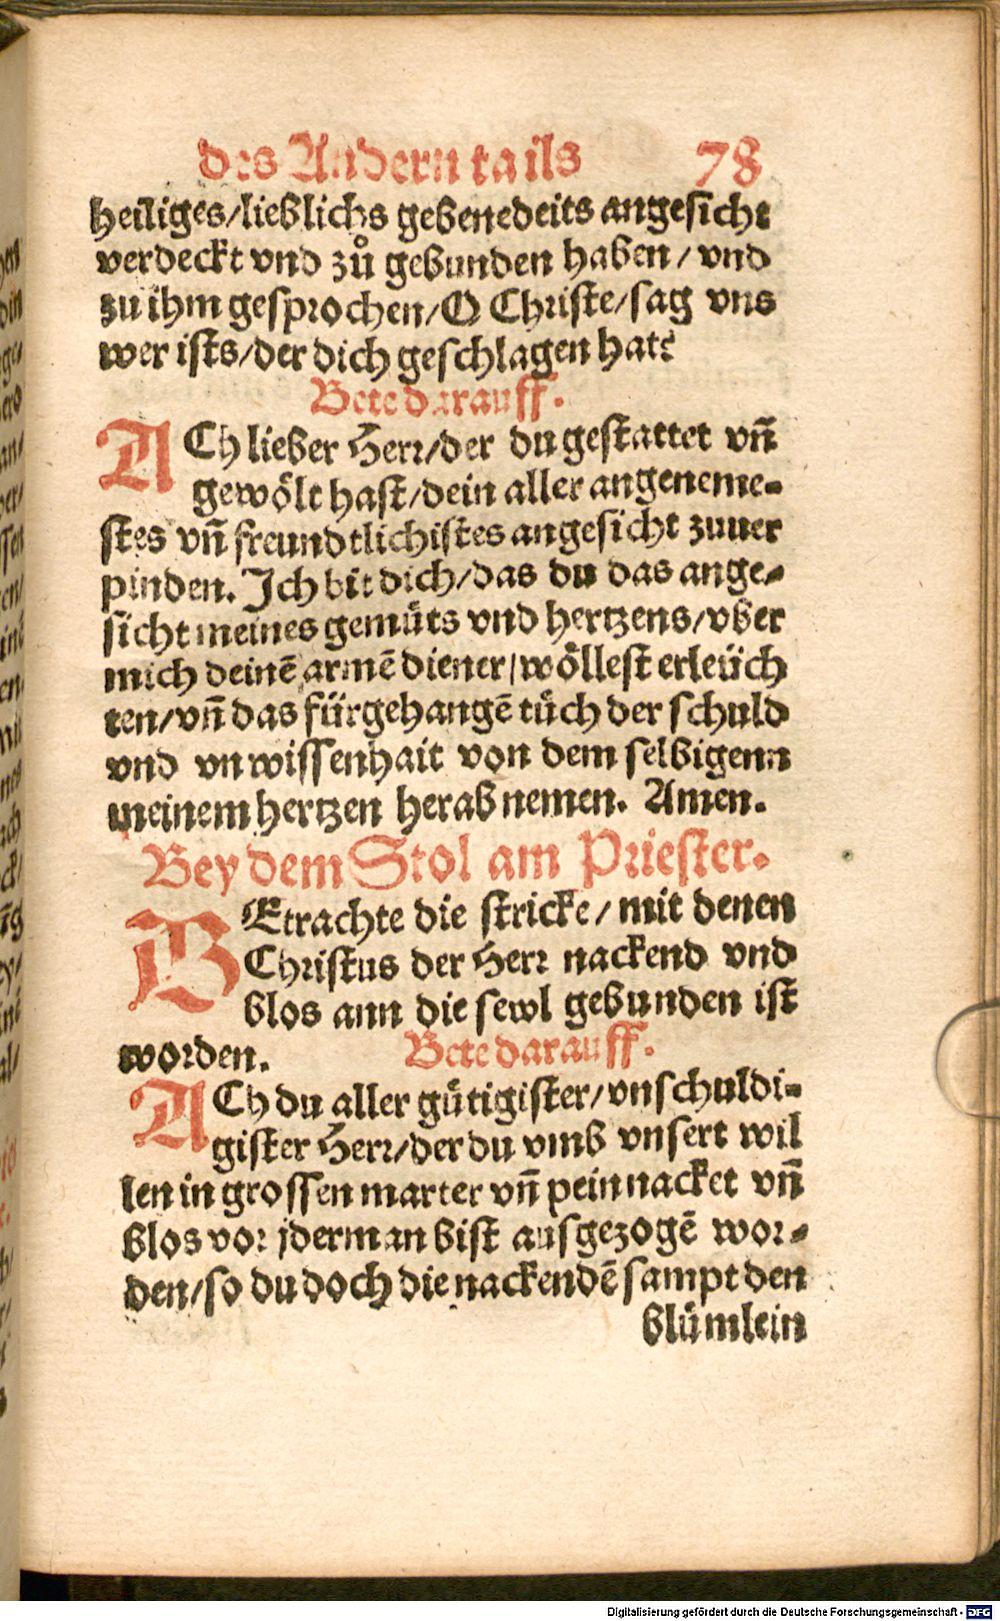 des Andern tails 78
heiliges/lieblichs gebenedeits angesicht
verdeckt vnd zů gebunden haben/ vnd
zu ihm gesprochen/O Christe/sag vns
wer ists/der dich geschlagen hat?
Bete darauff.
ACh lieber Herr/der du gestattet vñ
gewölt hast/dein aller angeneme-
stes vñ freundtlichistes angesicht zuuer
pinden. Ich bit dich/das du das ange-
sicht meines gemüts vnd hertzens/vber
mich deinē armē diener/wöllest erleüch
ten/vñ das fürgehangē tüch der schuld
vnd vnwissenhait von dem selbigenn
meinem hertzen herab nemen. Amen.
Bey dem Stol am Priester.
BEtrachte die stricke/ mit denen
Christus der Herr nackend vnd
blos ann die sewl gebunden ist
worden. Bete darauff.
ACh du aller gütigister/vnschuldi-
gister Herr/der du vmb vnsert wil
len in grossen marter vñ pein nacket vñ
blos vor jderman bist ausgezogē wor-
den/so du doch die nackendē sampt den
blümlein
Digitalisierung gefördert durch die Deutsche Forschungsgemeinschaft - DFG